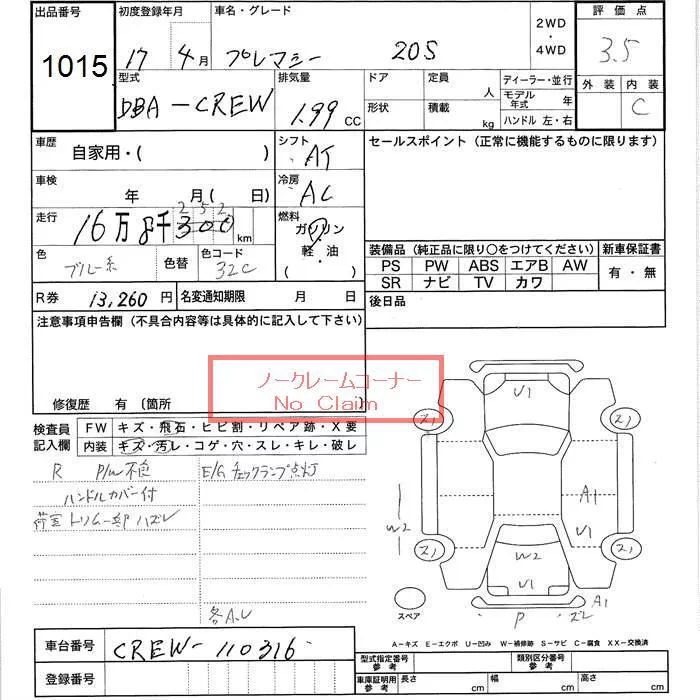 出品番号 初度登録年月 車名・グレード 2WD ・ 4WD 評価点
1015 17 4月 プレマシー 20S 3.5
型式 排気量 ドア 定員 人 ディーラー・並行 外装 内装
DBA-CREW 1.99 CC 形状 積載 kg モデル年式 年 C
ハンドル 左・右
車歴 自家用・( ) シフト AT セールスポイント (正常に機能するものに限ります)
車検 年 月( 日) 冷房 AC
走行 16万8千300 252 km 燃料 ガソリン
軽・油
( )
色 ブルー系 色替 色コード 32C
装備品 (純正品に限り○をつけてください) 新車保証書
PS PW ABS エアB AW 有・無
SR ナビ TV カワ
R券 13,260円 名変通知期限 月 日 後日品
注意事項申告欄 (不具合内容等は具体的に記入して下さい)
ノークレームコーナー
No Claim
修復歴 有 (箇所 )
検査員記入欄 FW キズ・飛石・ヒビ割・リペア跡・X要
内装 キズ・汚レ・コゲ・穴・スレ・キレ・破レ
R P/W不良 E/Gチェックランプ点灯
ハンドルカバー付
荷室トリム一部ハズレ
各A.U
U1
2) 2)
A1
W2 U1
2) W2 2)
U1
A1
スペア P ズレ
A-キズ E-エクボ U-凹み W-補修跡 S-サビ C-腐食 XX-交換済
車台番号 CREW-110316
登録番号
型式指定番号 参考 類別区分番号 参考
車庫証明用 参考 長さ cm 幅 cm 高さ cm